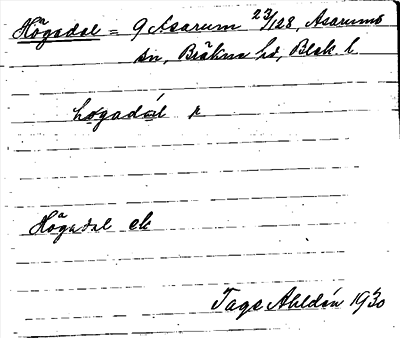 Högadal = 9 Asarum 23/128, Asarums
sn, Bräkne hd, Blek. l.
högadál r
Högadal ek
Tage Ahldén 1930